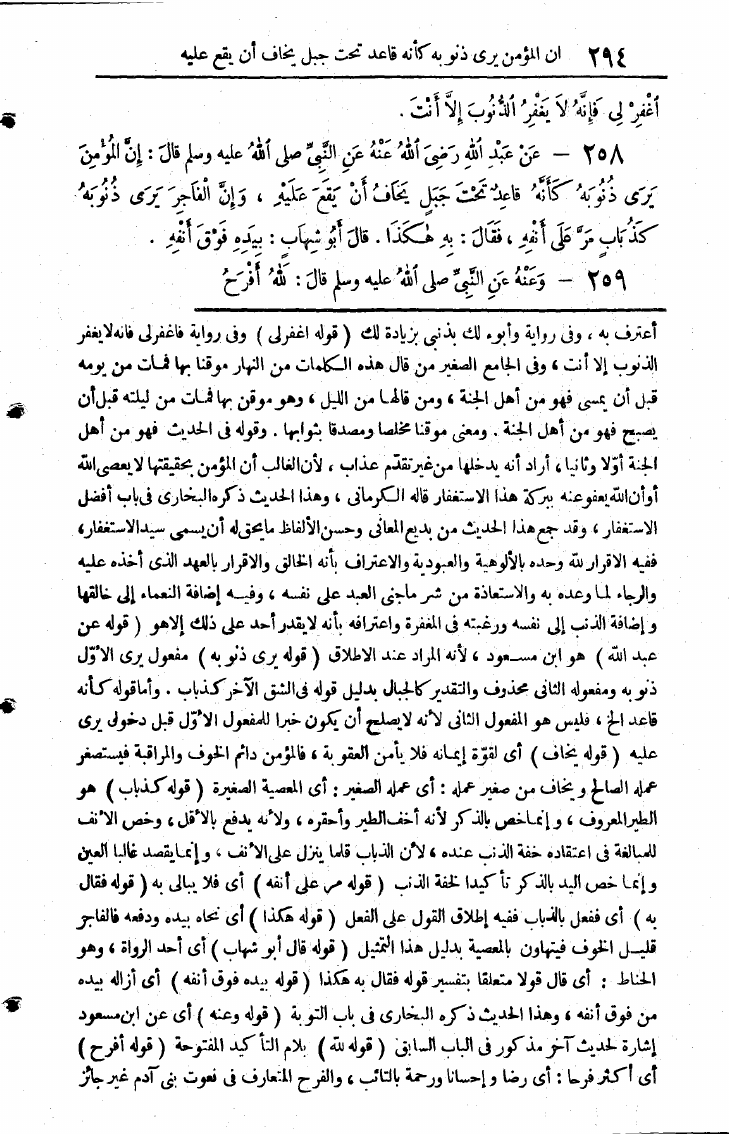 ٢٩٤ ان المؤمن يرى ذنوبه كأنه قاعد تحت جبل يخاف أن يقع عليه
اَغْفِرْ لِي فَإِنَّهُ لَا يَغْفِرُ الذُّنُوبَ إِلَّا أَنْتَ .
٢٥٨ — عَنْ عَبْدِ اللهِ رَضِيَ اللهُ عَنْهُ عَنِ النَّبِيِّ صلى اللهُ عليه وسلم قَالَ : إِنَّ الْمُؤْمِنَ
يَرَى ذُنُوبَهُ كَأَنَّهُ قَاعِدٌ تَحْتَ جَبَلٍ يَخَافُ أَنْ يَقَعَ عَلَيْهِ ، وَإِنَّ الْفَاجِرَ يَرَى ذُنُوبَهُ
كَذُبَابٍ مَرَّ عَلَى أَنْفِهِ ، فَقَالَ : بِهِ هٰكَذَا . قَالَ أَبُو شِهَابٍ : بِيَدِهِ فَوْقَ أَنْفِهِ .
٢٥٩ — وَعَنْهُ عَنِ النَّبِيِّ صلى اللهُ عليه وسلم قَالَ : لَلّٰهُ أَفْرَحُ
أعترف به ، وفى رواية وأبوء لك بذنبى بزيادة لك ( قوله اغفرلى ) وفى رواية فاغفرلى فانه لا يغفر
الذنوب إلا أنت ، وفى الجامع الصغير من قال هذه الكلمات من النهار موقنا بها فمات من يومه
قبل أن يمسى فهو من أهل الجنة ، ومن قالها من الليل ، وهو موقن بها فمات من ليلته قبل أن
يصبح فهو من أهل الجنة . ومعنى موقنا مخلصا ومصدقا بثوابها . وقوله فى الحديث فهو من أهل
الجنة أوّلا وثانيا ، أراد أنه يدخلها من غير تقدّم عذاب ، لأن الغالب أن المؤمن بحقيقتها لا يعصى الله
أو أن الله يعفو عنه ببركة هذا الاستغفار قاله الكرمانى ، وهذا الحديث ذكره البخارى فى باب أفضل
الاستغفار ، وقد جمع هذا الحديث من بديع المعانى وحسن الألفاظ ما يحق له أن يسمى سيد الاستغفار ،
ففيه الاقرار لله وحده بالألوهية والعبودية والاعتراف بأنه الخالق والاقرار بالعهد الذى أخذه عليه
والرجاء لما وعده به والاستعاذة من شر ماجنى العبد على نفسه ، وفيه إضافة النعماء إلى خالقها
وإضافة الذنب إلى نفسه ورغبته فى المغفرة واعترافه بأنه لا يقدر أحد على ذلك إلا هو ( قوله عن
عبد الله ) هو ابن مسعود ، لأنه المراد عند الاطلاق ( قوله يرى ذنوبه ) مفعول يرى الأوّل
ذنوبه ومفعوله الثانى محذوف والتقدير كالجبال بدليل قوله فى الشق الآخر كذباب . وأما قوله كأنه
قاعد الخ ، فليس هو المفعول الثانى لأنه لا يصلح أن يكون خبرا للمفعول الأوّل قبل دخول يرى
عليه ( قوله يخاف ) أى لقوّة إيمانه فلا يأمن العقوبة ، فالمؤمن دائم الخوف والمراقبة فيستصغر
عمله الصالح ويخاف من صغير عمله : أى عمله الصغير : أى المعصية الصغيرة ( قوله كذباب ) هو
الطير المعروف ، وإنما خص بالذكر لأنه أخف الطير وأحقره ، ولأنه يدفع بالأقل ، وخص الأنف
للمبالغة فى اعتقاده خفة الذنب عنده ، لأن الذباب قلما ينزل على الأنف ، وإنما يقصد غالبا العين
وإنما خص اليد بالذكر تأكيدا لخفة الذنب ( قوله مر على أنفه ) أى فلا يبالى به ( قوله فقال
به ) أى ففعل بالذباب ففيه إطلاق القول على الفعل ( قوله هكذا ) أى نحاه بيده ودفعه فالفاجر
قليل الخوف فيتهاون بالمعصية بدليل هذا التمثيل ( قوله قال أبو شهاب ) أى أحد الرواة ، وهو
الحناط : أى قال قولا متعلقا بتفسير قوله فقال به هكذا ( قوله بيده فوق أنفه ) أى أزاله بيده
من فوق أنفه ، وهذا الحديث ذكره البخارى فى باب التوبة ( قوله وعنه ) أى عن ابن مسعود
إشارة لحديث آخر مذكور فى الباب السابق ( قوله لله ) بلام التأكيد المفتوحة ( قوله أفرح )
أى أكثر فرحا : أى رضا وإحسانا ورحمة بالتائب ، والفرح المتعارف فى نعوت بنى آدم غير جائز